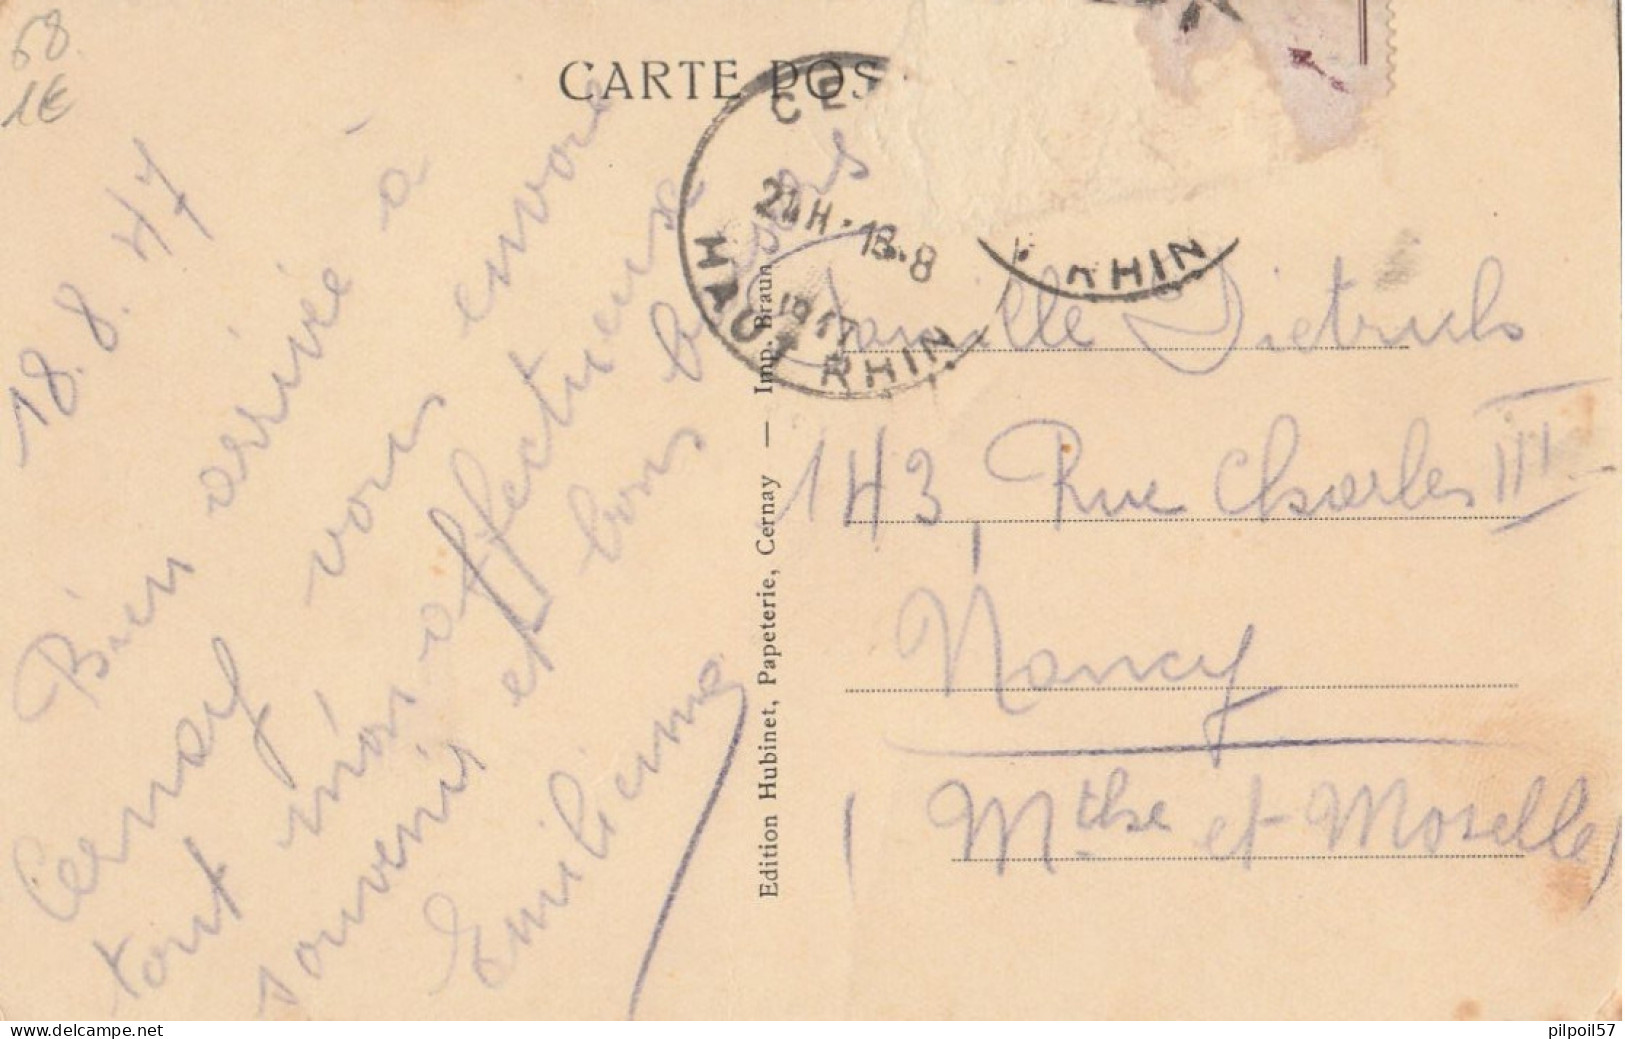 68.
1€
CARTE POS
CE
24H-18.8
1947
HAUT RHIN
RHIN
18.8.47
Bien arrivée à
Cernay vous envoie
tout mon affectueux
souvenir et bons baisers
Emilienne
Edition Hubinet, Papeterie, Cernay — Imp. Braun
Famille Dietrich
143 Rue Charles III
Nancy
(Mthe et Moselle)
Zoomez sur l'article
pilpoil57